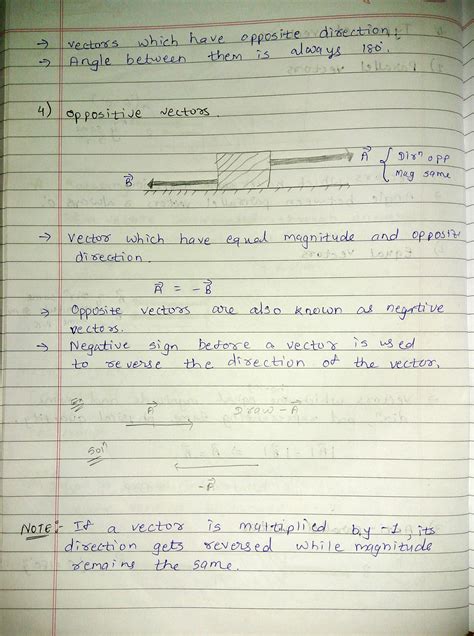 → vectors which have opposite direction.
→ Angle between them is always 180°.
4) Oppositive vectors.
A⃗ { Dirⁿ opp
Mag same
B⃗
→ Vector which have equal magnitude and opposite
direction.
A⃗ = -B⃗
→ Opposite vectors are also known as negative
vectors.
→ Negative sign before a vector is used
to reverse the direction of the vector.
A⃗ Draw -A⃗
Solⁿ
-A⃗
NOTE:- If a vector is multiplied by -1, its
direction gets reversed while magnitude
remains the same.